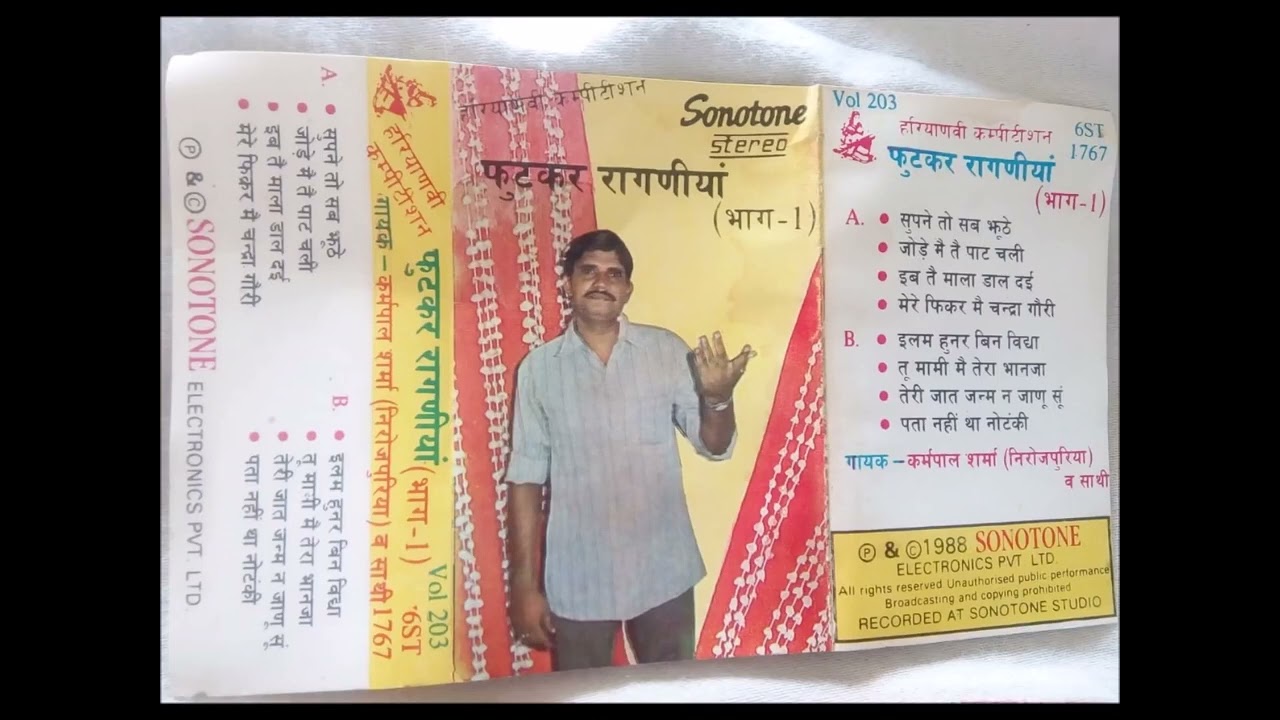 A.
सुपने तो सब झूठे
जोड़े मै तै पाट चली
इब तै माला डाल दई
मेरे फिकर मै चन्द्रा गौरी
B.
इलम हुनर बिन विद्या
तू मामी मै तेरा भानजा
तेरी जात जन्म न जाणू सूं
पता नहीं था नोटंकी
Ⓟ & © SONOTONE ELECTRONICS PVT. LTD.
हरियाणवी कम्पीटीशन
फुटकर रागणीयां (भाग-1)
Vol 203
गायक – कर्मपाल शर्मा (निरोजपुरिया) व साथी
6ST 1767
हरियाणवी कम्पीटीशन
Sonotone
stereo
फुटकर रागणीयां
(भाग-1)
Vol 203
हरियाणवी कम्पीटीशन
6ST
1767
फुटकर रागणीयां
(भाग-1)
A. • सुपने तो सब झूठे
• जोड़े मै तै पाट चली
• इब तै माला डाल दई
• मेरे फिकर मै चन्द्रा गौरी
B. • इलम हुनर बिन विद्या
• तू मामी मै तेरा भानजा
• तेरी जात जन्म न जाणू सूं
• पता नहीं था नोटंकी
गायक – कर्मपाल शर्मा (निरोजपुरिया)
व साथी
Ⓟ & © 1988 SONOTONE
ELECTRONICS PVT LTD.
All rights reserved Unauthorised public performance
Broadcasting and copying prohibited
RECORDED AT SONOTONE STUDIO